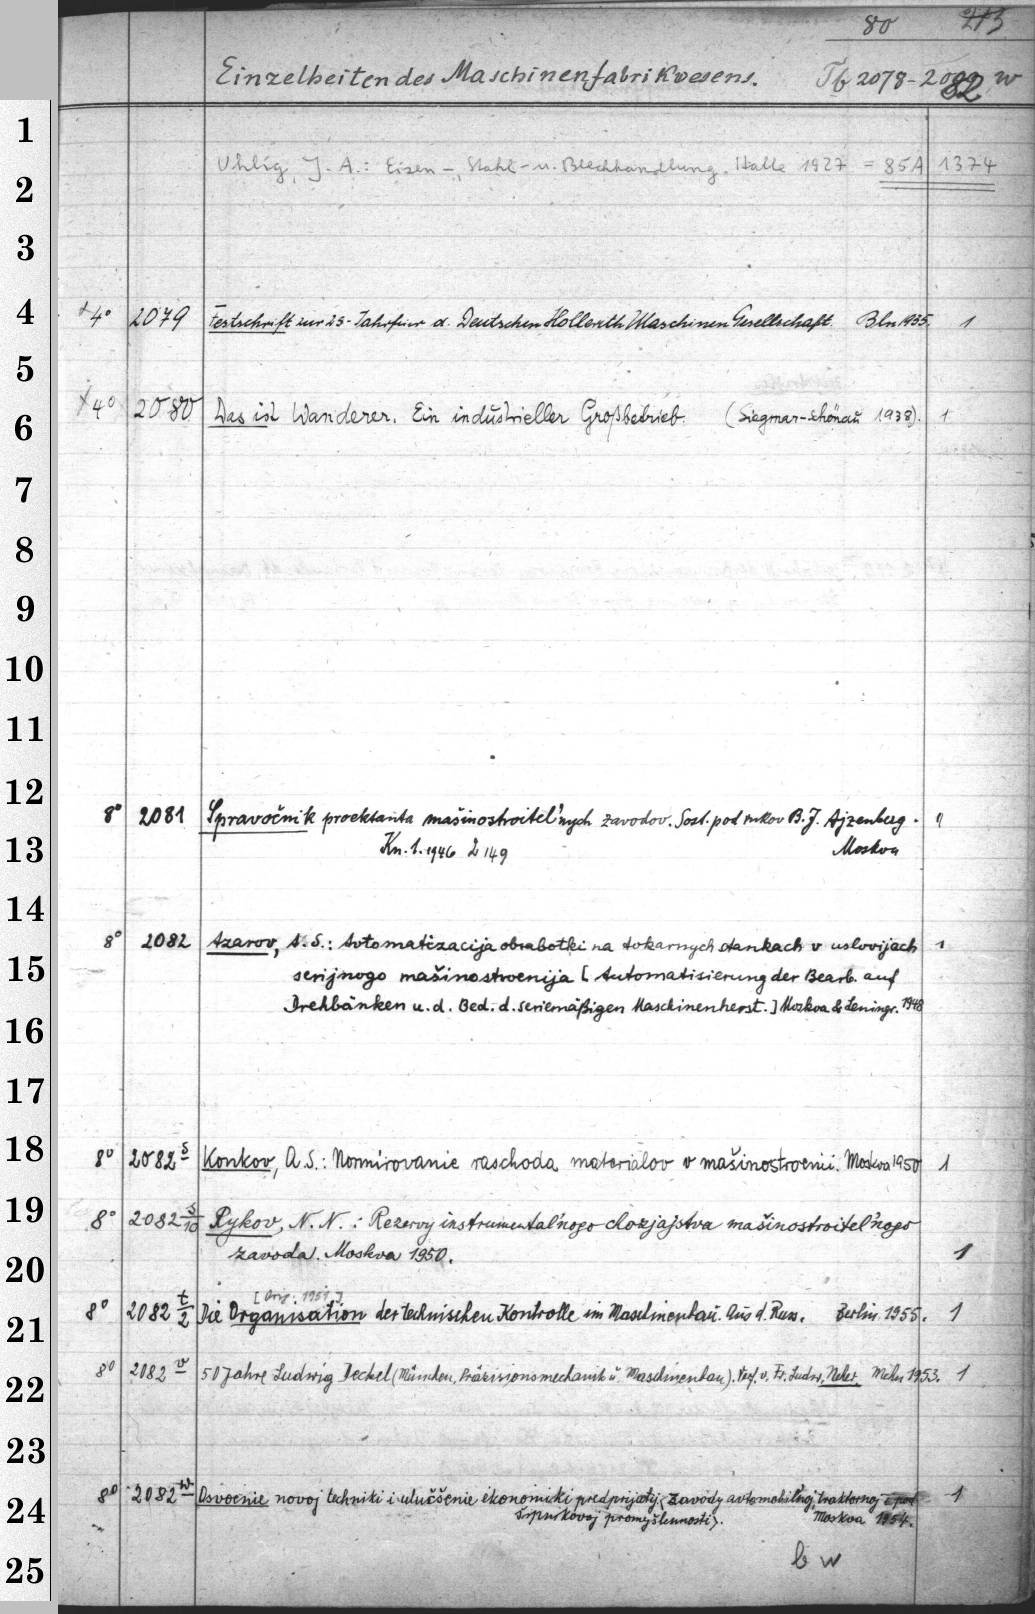 80 213
Einzelheiten des Maschinenfabrikwesens. Tf 2078-2082 w
Uhlig, J. A.: Eisen-, Stahl- u. Blechhandlung. Halle 1927 = 85A 1374
1
2
3
4
+4° 2079 Festschrift zur 25-Jahrfeier d. Deutschen Hollerith Maschinen Gesellschaft. Bln 1935. 1
5
×4° 2080 Das ist Wanderer. Ein industrieller Großbetrieb. (Siegmar-Schönau 1938). 1
6
7
8
9
10
11
12
8° 2081 Spravočnik proektanta mašinostroitel'nych zavodov. Sost. pod rukov B. J. Ajzenberg.
13
Kn. 1. 1946 2 149 Moskva
14
8° 2082 Azarov, A. S.: Avtomatizacija obrabotki na tokarnych stankach v uslovijach 1
15
serijnogo mašinostroenija [Automatisierung der Bearb. auf
Drehbänken u. d. Bed. d. seriemäßigen Maschinenherst.] Moskva & Leningr. 1948
16
17
18
8° 2082 s Konkov, A. S.: Normirovanie raschoda materialov v mašinostroenii. Moskva 1950 1
19
8° 2082 s/10 Rykov, N. N.: Rezervy instrumental'nogo chozjajstva mašinostroitel'nogo
zavoda. Moskva 1950. 1
20
[Orig. 1951]
8° 2082 t/2 Die Organisation der technischen Kontrolle im Maschinenbau. Aus d. Russ. Berlin 1955. 1
21
8° 2082 v 50 Jahre Ludwig Deckel (München, Präzisionsmechanik u. Maschinenbau). Verf. v. Fr. Ludw. Neher. Mchn 1953. 1
22
23
8° 2082 w Osvoenie novoj techniki i ulučšenie ekonomiki predprijatij <Zavody avtomobil'noj, traktornoj i pod 1
24
šipnikovoj promyšlennosti>. Moskva 1954.
b w
25